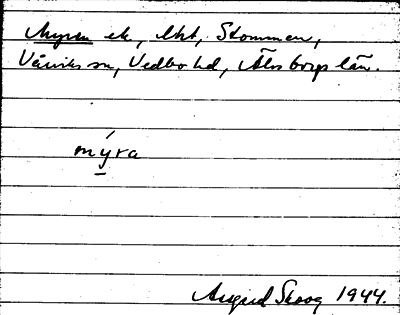 Myren ek, Akt, Stommen,
Vårviks sn, Vedbo hd, Älvsborgs län.
mýra
Assgerd Skoog 1944.